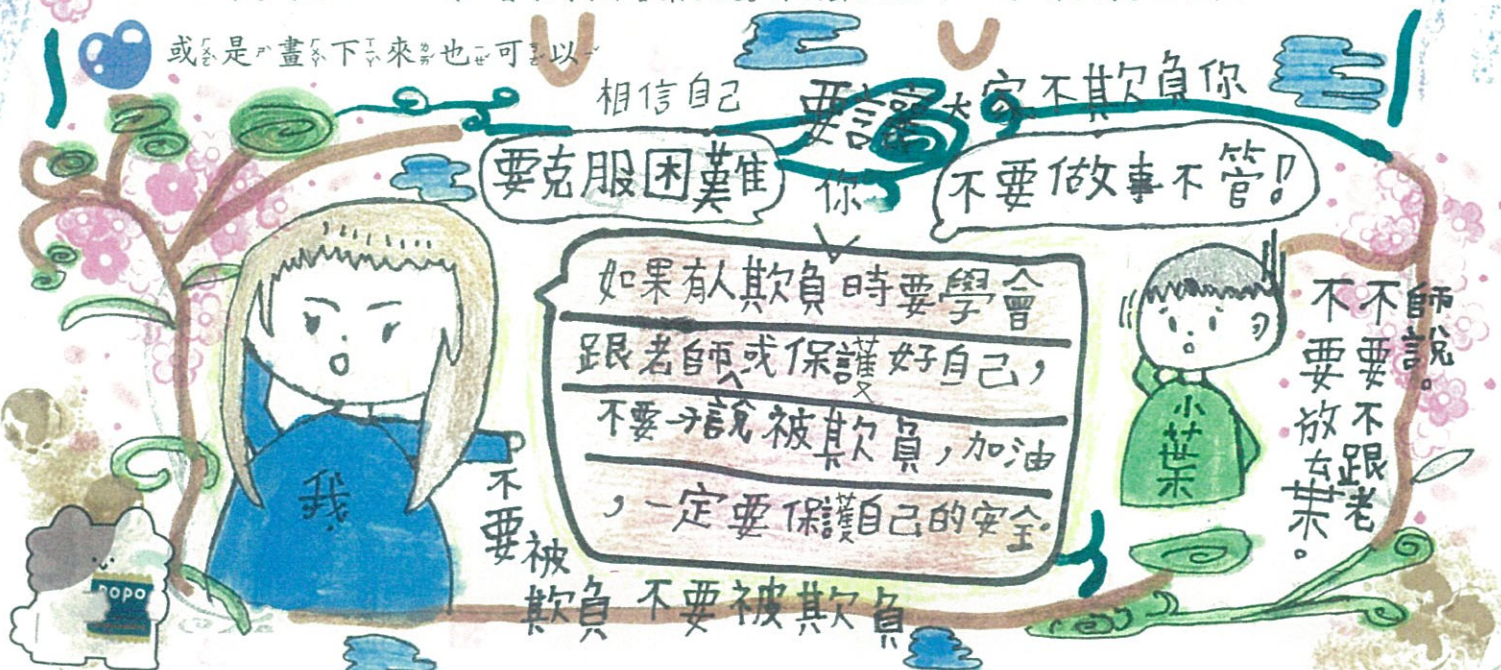 或是畫下來也可以
相信自己
要讓大家不欺負你
要克服困難
你
不要做事不管!
如果有人欺負時要學會
跟老師或保護好自己,
不要說被欺負,加油
,一定要保護自己的安全。
我
小葉
師說。
不要不跟老
不要放棄。
不要被
欺負 不要被欺負
POPO